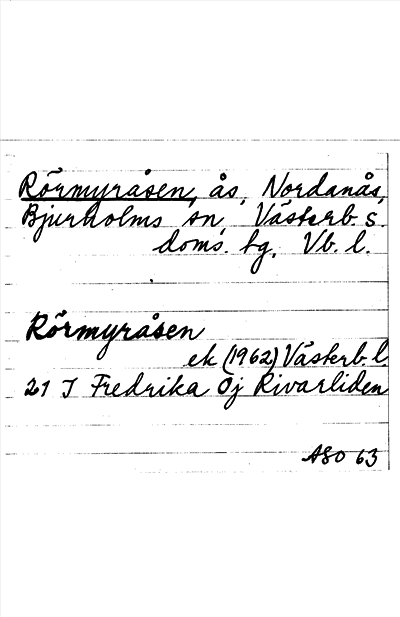 Rörmyråsen, ås, Nordanås,
Bjurholms sn, Västerb. s.
doms. bg, Vb. l.
Rörmyråsen
ek (1962) Västerb. l.
21 J Fredrika Öj Rivarliden
ASO 63